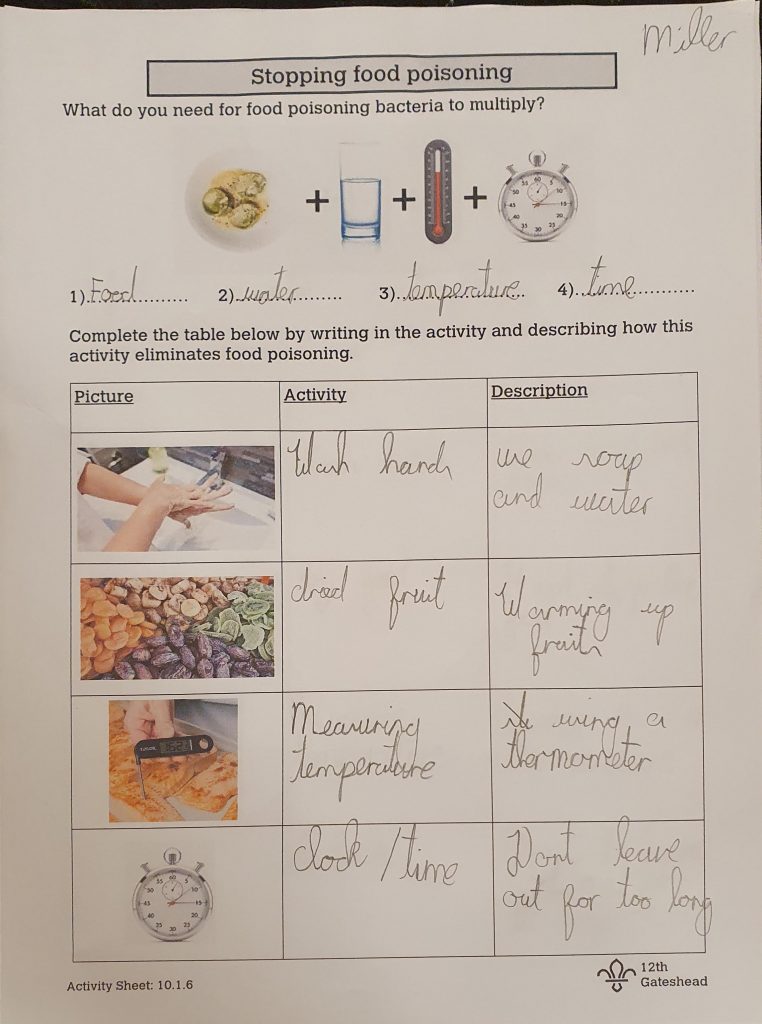 Miller
Stopping food poisoning
What do you need for food poisoning bacteria to multiply?
+ + +
1).Food......... 2)..water......... 3)..temperature.. 4)..time............
Complete the table below by writing in the activity and describing how this
activity eliminates food poisoning.
Picture Activity Description
Wash hands
use soap
and water
dried fruit
Warming up
fruits
Measuring
temperature
using a
thermometer
clock / time
Dont leave
out for too long
Activity Sheet: 10.1.6
12th
Gateshead